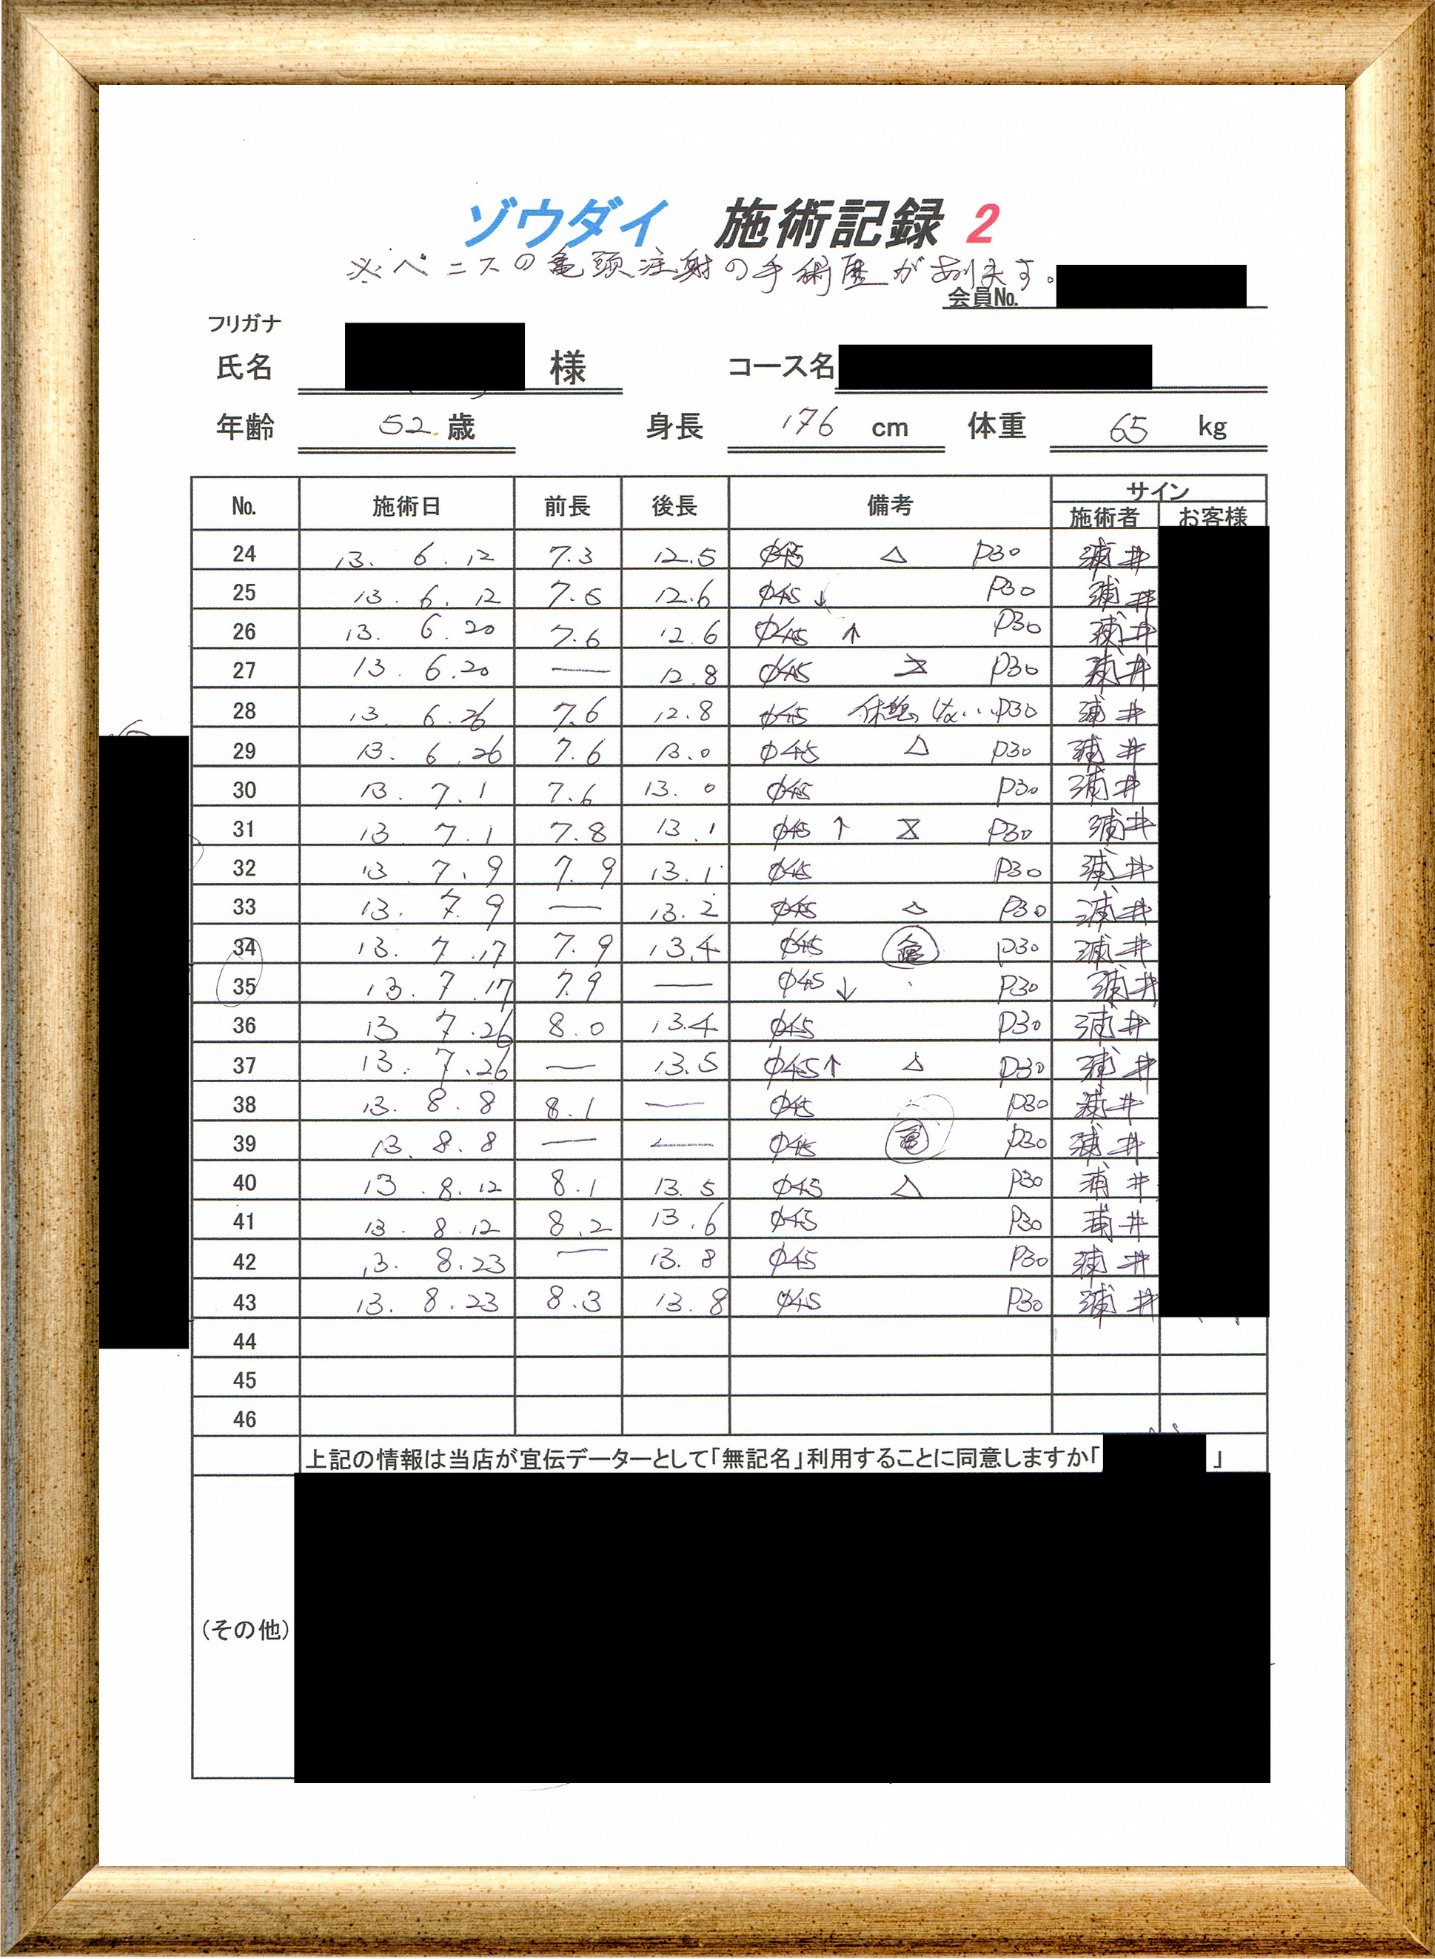 ゾウダイ 施術記録 2
※ペニスの亀頭注射の手術歴があります。
会員No.
フリガナ
氏名 様 コース名
年齢 52 歳 身長 176 cm 体重 65 kg
No. 施術日 前長 後長 備考 サイン
施術者 お客様
24 13. 6. 12 7.3 12.5 φ45 △ P30 浦井
25 13. 6. 12 7.5 12.6 φ45 ↓ P30 浦井
26 13. 6. 20 7.6 12.6 φ45 ↑ P30 浦井
27 13 6.20 — 12.8 φ45 P30 浦井
28 13. 6.26 7.6 12.8 φ45 休憩 P30 浦井
29 13. 6.26 7.6 13.0 φ45 △ P30 浦井
30 13. 7.1 7.6 13.0 φ45 P30 浦井
31 13 7.1 7.8 13.1 φ45 ↑ P30 浦井
32 13 7.9 7.9 13.1 φ45 P30 浦井
33 13. 7.9 — 13.2 φ45 △ P30 浦井
34 13. 7.17 7.9 13.4 φ45 P30 浦井
35 13. 7.17 7.9 — φ45 ↓ P30 浦井
36 13 7.26 8.0 13.4 φ45 P30 浦井
37 13. 7.26 — 13.5 φ45 ↑ △ P30 浦井
38 13. 8.8 8.1 — φ45 P30 浦井
39 13. 8.8 — — φ45 亀 P30 浦井
40 13 8.12 8.1 13.5 φ45 △ P30 浦井
41 13. 8.12 8.2 13.6 φ45 P30 浦井
42 13. 8.23 — 13.8 φ45 P30 浦井
43 13. 8.23 8.3 13.8 φ45 P30 浦井
44
45
46
上記の情報は当店が宣伝データーとして「無記名」利用することに同意しますか「 」
(その他)